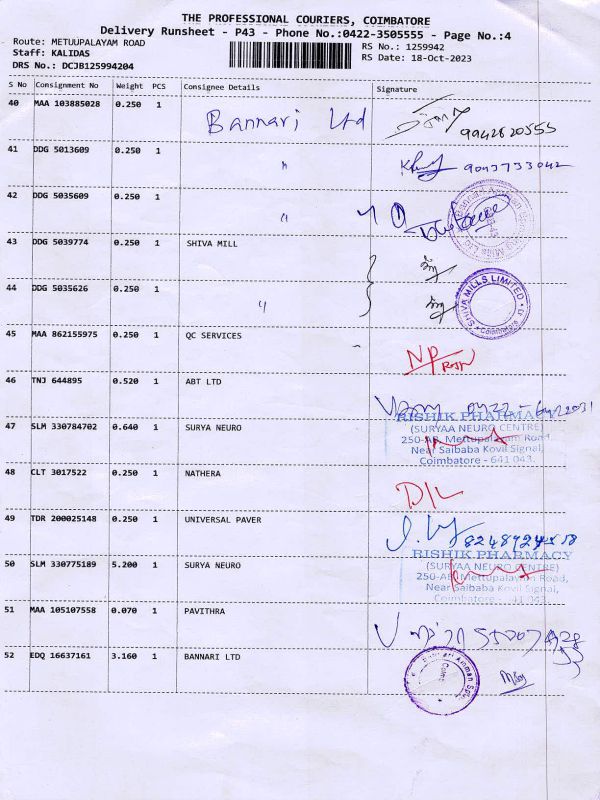 THE PROFESSIONAL COURIERS, COIMBATORE
Delivery Runsheet - P43 - Phone No.:0422-3505555 - Page No.:4
Route: METUUPALAYAM ROAD RS No.: 1259942
Staff: KALIDAS RS Date: 18-Oct-2023
DRS No.: DCJB125994204
S No Consignment No Weight PCS Consignee Details Signature
40 MAA 103885028 0.250 1 Bannari Ltd 9942620555
41 DDG 5013609 0.250 1 " 9043733042
42 DDG 5035609 0.250 1 "
43 DDG 5039774 0.250 1 SHIVA MILL
44 DDG 5035626 0.250 1 "
SHIVA MILLS LIMITED
Coimbatore
45 MAA 862155975 0.250 1 QC SERVICES NP
46 TNJ 644895 0.520 1 ABT LTD
47 SLM 330784702 0.640 1 SURYA NEURO
RISHIK PHARMACY
(SURYAA NEURO CENTRE)
250-AB, Mettupalayam Road,
Near Saibaba Kovil Signal,
Coimbatore - 641 043.
48 CLT 3017522 0.250 1 NATHERA D/L
49 TDR 200025148 0.250 1 UNIVERSAL PAVER
50 SLM 330775189 5.200 1 SURYA NEURO
RISHIK PHARMACY
(SURYAA NEURO CENTRE)
250-AB, Mettupalayam Road,
Near Saibaba Kovil Signal,
Coimbatore - 641 043.
51 MAA 105107558 0.070 1 PAVITHRA
52 EDQ 16637161 3.160 1 BANNARI LTD